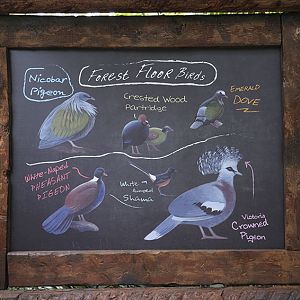 Nicobar
Pigeon
Forest Floor Birds
Crested Wood
Partridge
Emerald
Dove
White-Naped
Pheasant
Pigeon
White-
Rumped
Shama
Victoria
Crowned
Pigeon